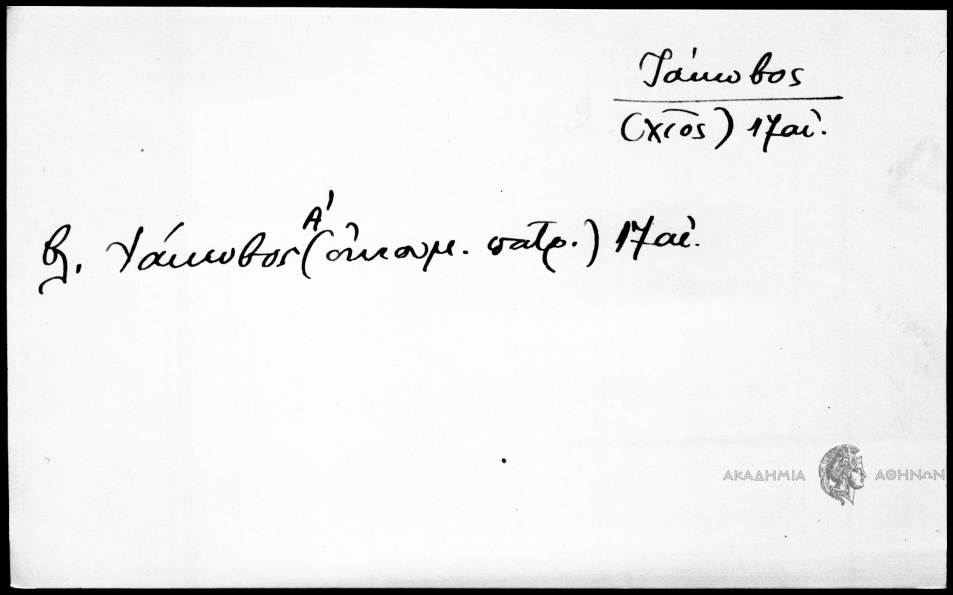 Ἰάκωβος
(χῖος) 17 αἰ.
βλ. Ἰάκωβος Α' (οἰκουμ. πατρ.) 17 αἰ.
ΑΚΑΔΗΜΙΑ ΑΘΗΝΩΝ